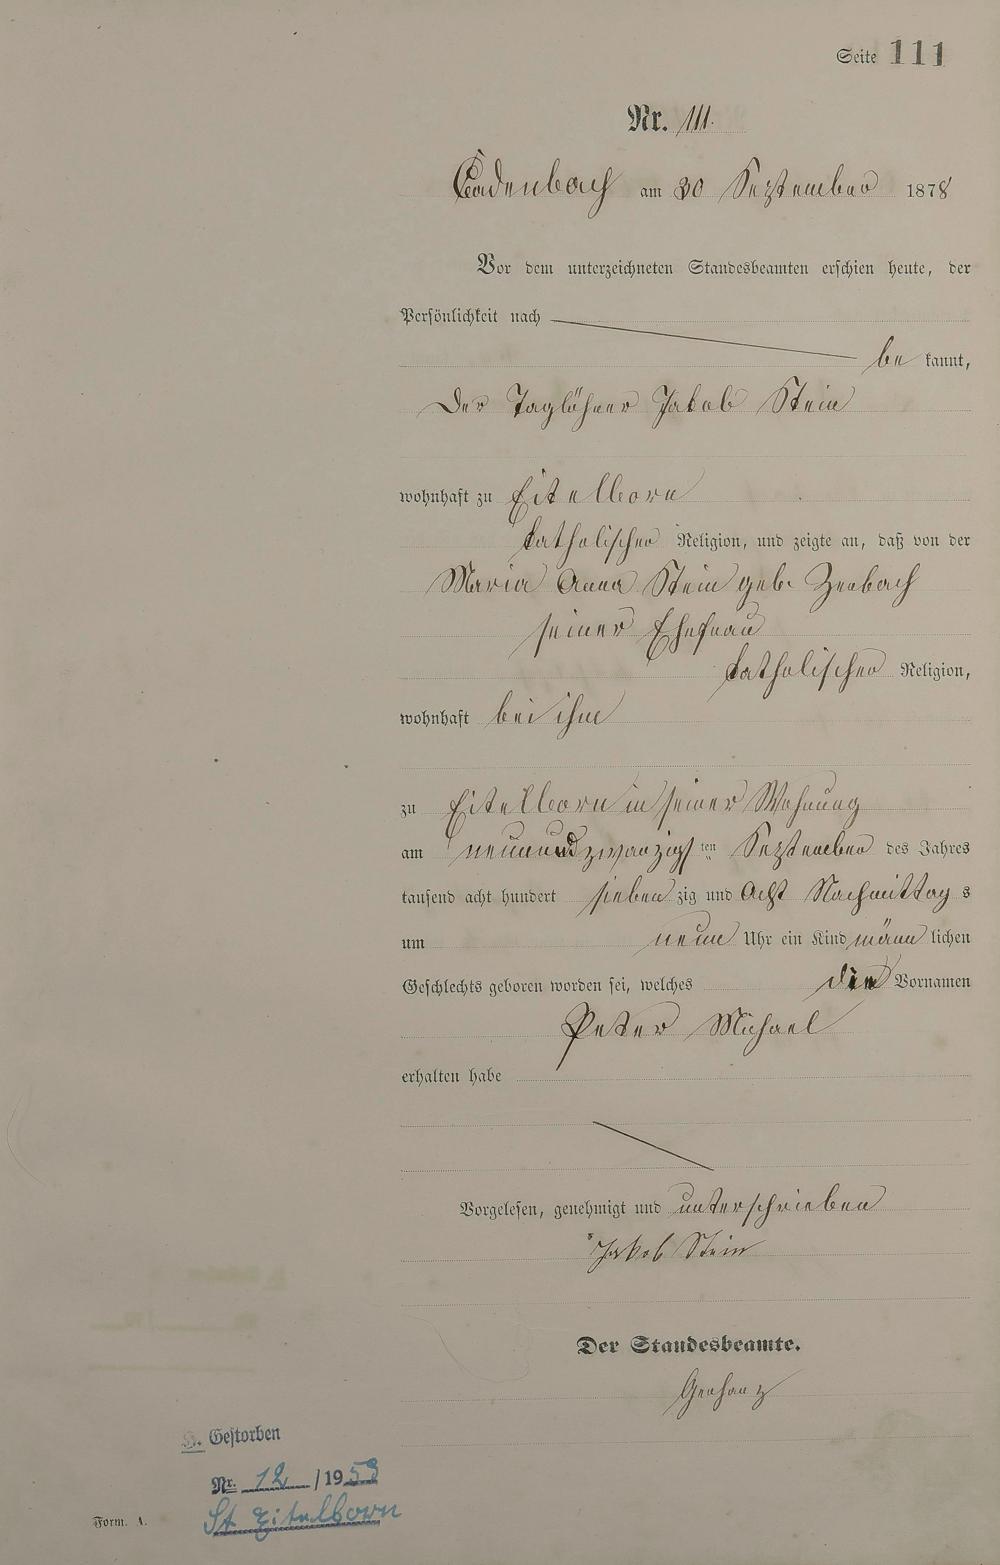 Seite 111
Nr. 111.
Cadenbach am 30 September 1878
Vor dem unterzeichneten Standesbeamten erschien heute, der
Persönlichkeit nach
be kannt,
Der Taglöhner Jakob Stein
wohnhaft zu Eitelborn
katholischer Religion, und zeigte an, daß von der
Maria Anna Stein geb. Zerbach
seiner Ehefrau
katholischer Religion,
wohnhaft bei ihm
zu Eitelborn in seiner Wohnung
am neunundzwanzigsten September des Jahres
tausend acht hundert sieben zig und Acht Nachmittag s
um neun Uhr ein Kind männ lichen
Geschlechts geboren worden sei, welches die Vornamen
Peter Michael
erhalten habe
Vorgelesen, genehmigt und unterschrieben
Jakob Stein
Der Standesbeamte.
Gerharz
Gestorben
Nr. 12 / 1953
St Eitelborn
Form. A.